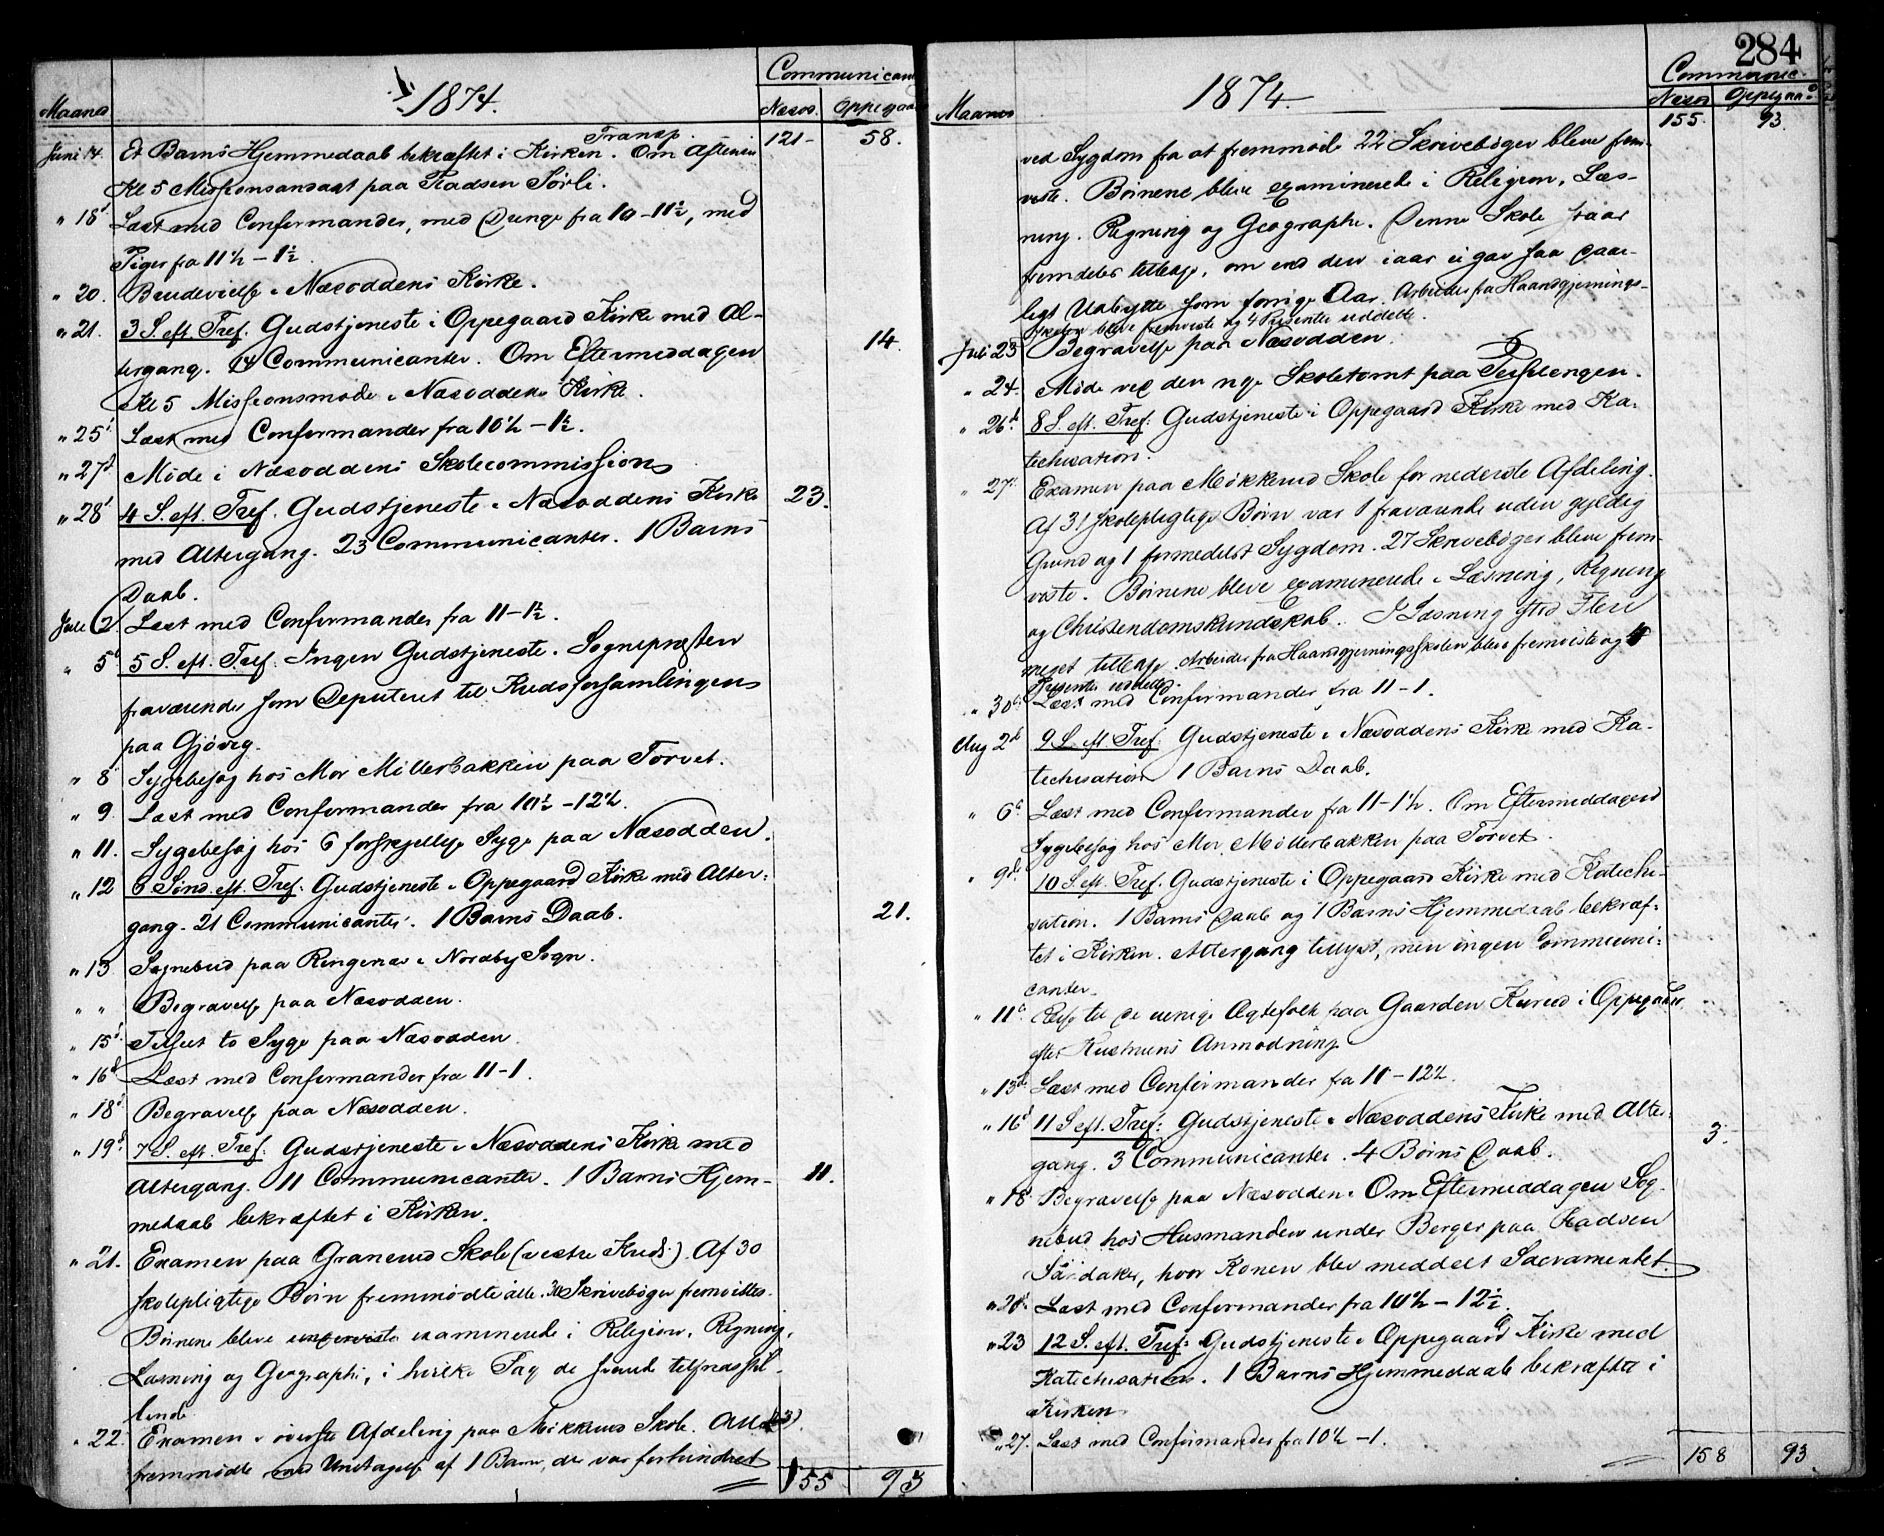 1874.
Communicant
Maaned
Næsod. Oppegaard
Transp. 121 - 58.
Juni 14. Et Barns Hjemmedaab bekræftet i Kirken. Om Aftenen
Kl 5 Missionsandagt paa Fladsen Sörli.
" 18d Læst med Confirmander, med Drenge fra 10 - 11½, med
Piger fra 11½ - 1½.
" 20. Brudevielse i Næsoddens Kirke.
" 21. 3 S. eft. Tref. Gudstjeneste i Oppegaard Kirke med Al-
tergang. 14 Communicanter. Om Eftermeddagen 14.
Kl 5 Missionsmøde i Næsoddens Kirke.
" 25d Læst med Confirmander fra 10½ - 1½.
" 27d Møde i Næsoddens Skolecommission
" 28d 4 S. eft. Tref. Gudstjeneste i Næsoddens Kirke 23.
med Altergang. 23 Communicanter. 1 Barns
Daab.
Juli 2. Læst med Confirmander fra 11 - 1½.
" 5d 5 S. eft. Tref. Ingen Gudstjeneste. Sognepræsten
fraværende som Deputeret til Kredsforsamlingen
paa Gjøvig.
" 8 Sygebesøg hos Mor Møllerbakken paa Torvet.
" 9. Læst med Confirmander fra 10½ - 12½.
" 11. Sygebesøg hos 6 forskjellige Syge paa Næsodden.
" 12 6 Sønd. eft. Tref. Gudstjeneste i Oppegaard Kirke med Alter-
gang. 21 Communicanter. 1 Barns Daab. 21.
" 13 Sognebud paa Ringenæs i Nordby Sogn.
" " Begravelse paa Næsodden.
" 15d Tilseet to Syge paa Næsodden.
" 16d Læst med Confirmander fra 11-1.
" 18d Begravelse paa Næsodden.
" 19d 7 S. eft. Tref. Gudstjeneste i Næsoddens Kirke med
Altergang. 11 Communicanter. 1 Barns Hjem- 11.
medaab bekræftet i Kirken.
" 21. Examen paa Granerud Skole (vestre Kreds). Af 30
skolepligtige Børn fremmødte alle. 30 Skrivebøger fremvistes.
Børnene bleve examinerede i Religion, Regning,
Læsning og Geographi, i hvilke Fag de fandt tilfredsstil-
lende
" 22. Examen i øverste Afdeling paa Møkkerud Skole. Alle (23)
fremmødte med Undtagelse af 1 Barn, der var forhindret
155 93
284
1874.
Communic.
Maaned
Næsod Oppegaard
155. 93.
ved Sygdom fra at fremmøde 22 Skrivebøger bleve frem-
viste. Børnene bleve examinerede i Religion, Læs-
ning. Regning og Geographi. Denne Skole staar
fremdeles tilbage, om end den iaar ei gav saa daar-
ligt Udbytte som forrige Aar. Arbeider fra Haandgjernings-
skolen bleve fremviste og 4 Præsenter uddelte.
Juli 23 Begravelse paa Næsodden.
" 24. Møde ved den nye Skoletomt paa
" 26d 8 S. eft. Tref. Gudstjeneste i Oppegaard Kirke med Ka-
techisation.
" 27. Examen paa Møkkerud Skole for nederste Afdeling.
Af 31 skolepligtige Børn var 1 fraværende uden gyldig
Grund og 1 formedelst Sygdom. 27 Skrivebøger bleve frem-
viste. Børnene bleve examinerede i Læsning, Regning
og Christendomskundskab. I Læsning stod Flere
meget tilbage. Arbeider fra Haandgjerningsskolen bleve fremviste og 4
Præsenter uddelte.
" 30d Læst med Confirmander fra 11-1.
Aug 2d 9 S. eft Tref. Gudstjeneste i Næsoddens Kirke med Ka-
techisation 1 Barns Daab.
" 6d Læst med Confirmander fra 11-1½. Om Eftermeddagen
Sygebesøg hos Mor Møllerbakken paa Torvet.
" 9d 10 S. eft. Tref. Gudstjeneste i Oppegaard Kirke med Katechi-
sation. 1 Barns Daab og 1 Barns Hjemmedaab bekræf-
tet i Kirken. Altergang tillyst, men ingen Communi-
canter.
" 11d Reise til de uenige Ægtefolk paa Gaarden Kurud i Oppegaard
efter Hustruens Anmodning
" 13d Læst med Confirmander fra 11 - 12½.
" 16d 11 S eft. Tref. Gudstjeneste i Næsoddens Kirke med Alter-
gang. 3 Communicanter. 4 Børns Daab. 3.
" 18 Begravelse paa Næsodden. Om Eftermeddagen Sog-
nebud hos Husmanden under Berger paa Fladsen
hvor Konen blev meddelt Sacramentet.
" 20d Læst med Confirmander fra 10½ - 12½.
" 23 12 S. eft. Tref. Gudstjeneste i Oppegaard Kirke med
Katechisation. 1 Barns Hjemmedaab bekræftet i
Kirken
" 27. Læst med Confirmander fra 10½ - 1.
158 93